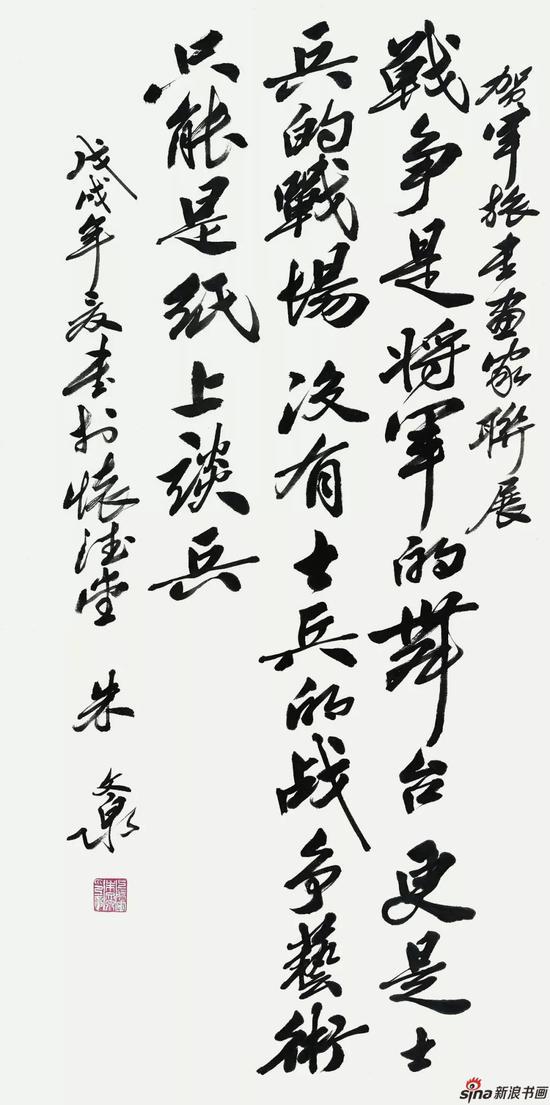 贺军旅書畫家聯展
戰争是将軍的舞台 更是士
兵的戰場 没有士兵的战争藝術
只能是纸上談兵
戊戌年夏書於懷德堂 朱文泉
sina新浪书画